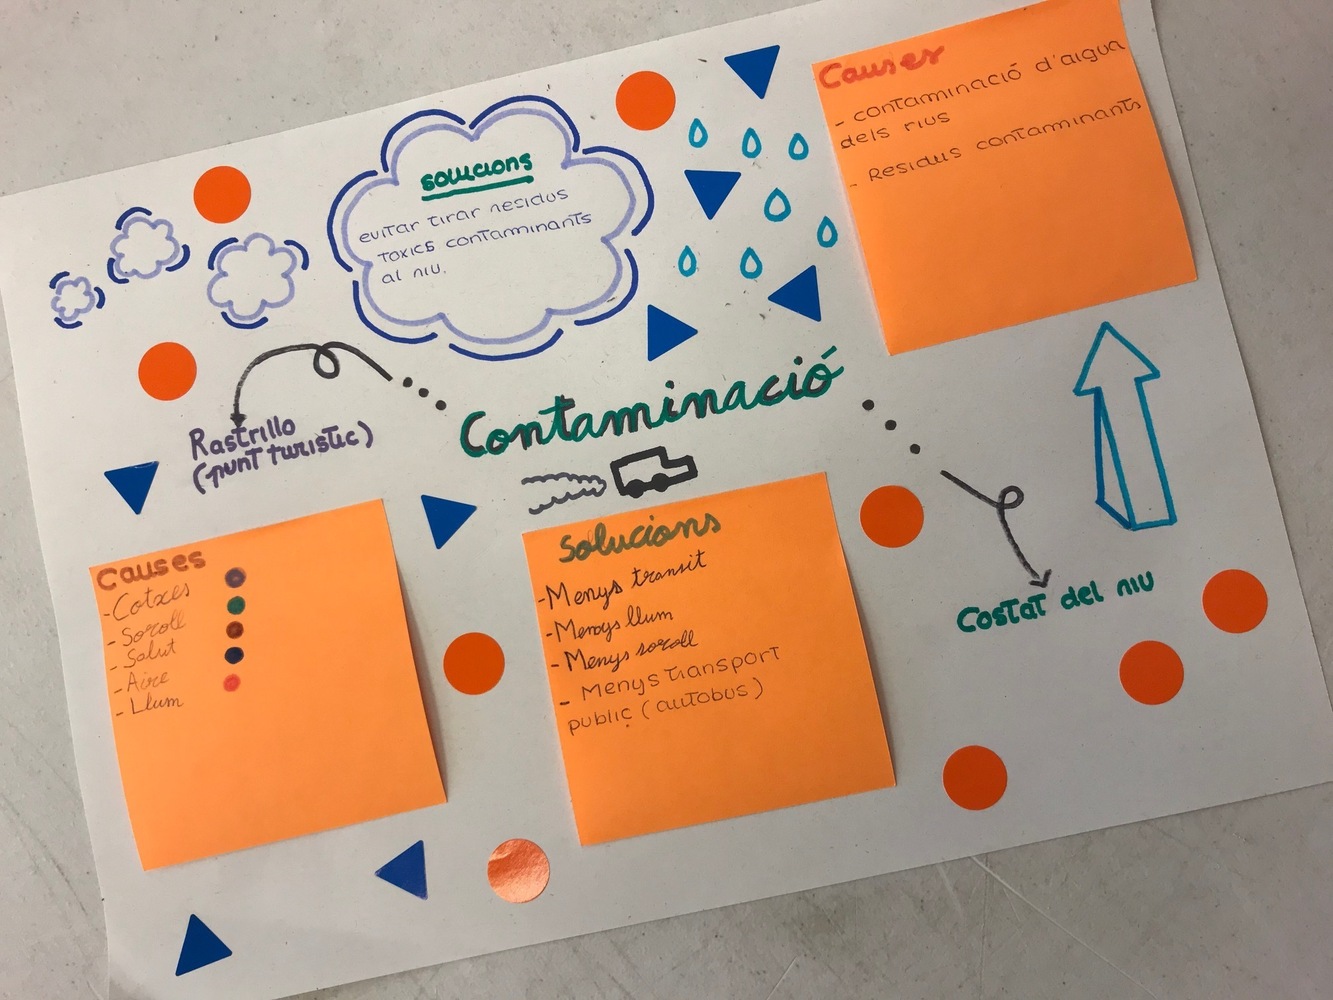 solucions
evitar tirar residus
toxics contaminants
al riu.
Causes
- contaminació d'aigua
dels rius
- Residus contaminants
Contaminació
Rastrillo
(punt turístic)
Costat del riu
Causes
- Cotxes
- Soroll
- Salut
- Aire
- Llum
Solucions
- Menys transit
- Menys llum
- Menys soroll
- Menys transport
public (autobus)